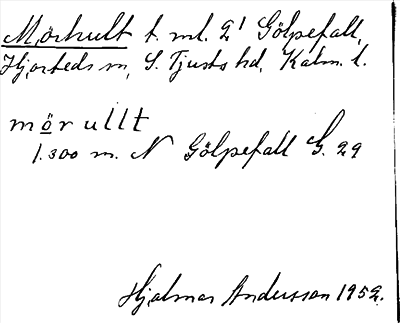 Mörhult t. ml. 2¹ Gölpefall,
Hjorteds sn, S. Tjusts hd, Kalm. l.
mör ullt
1.300 m. N Gölpefall G. 29
Hjalmar Andersson 1952.